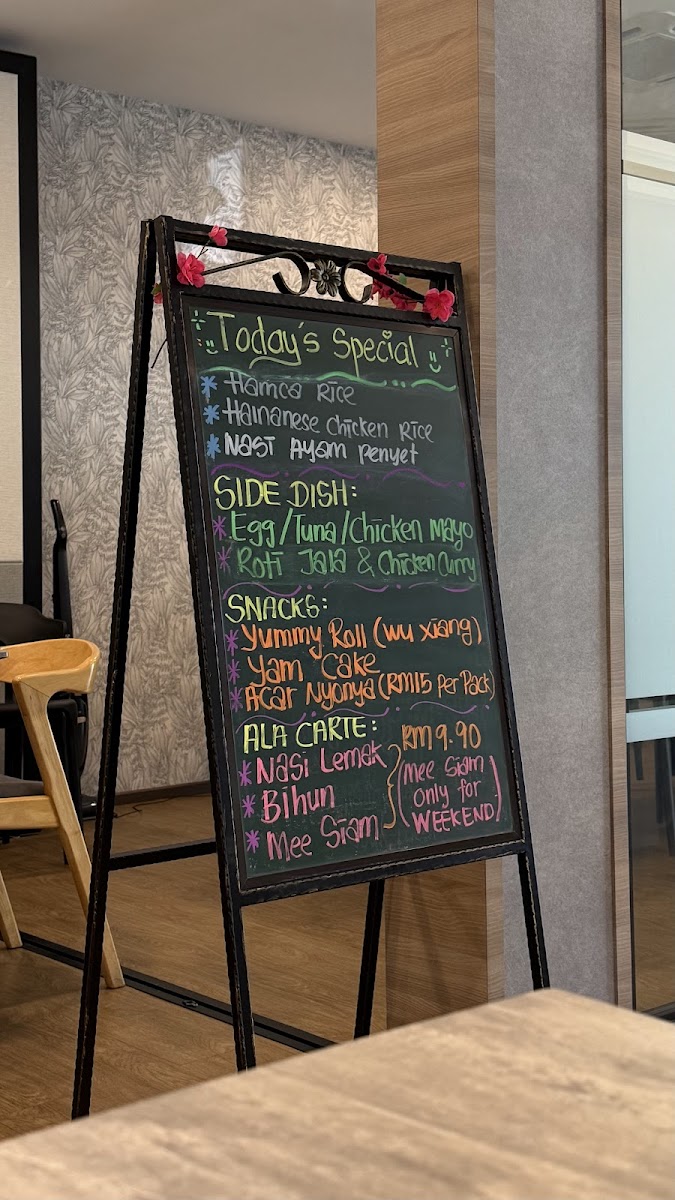 Today's Special
* Hamca Rice
* Hainanese Chicken Rice
* Nasi Ayam Penyet
SIDE DISH:
* Egg/Tuna/Chicken Mayo
* Roti Jala & Chicken Curry
SNACKS:
* Yummy Roll (Wu Xiang)
* Yam Cake
* Acar Nyonya (RM15 Per Pack)
ALA CARTE: RM 9.90
* Nasi Lemak
* Bihun
* Mee Siam
(Mee Siam
only for
WEEKEND)